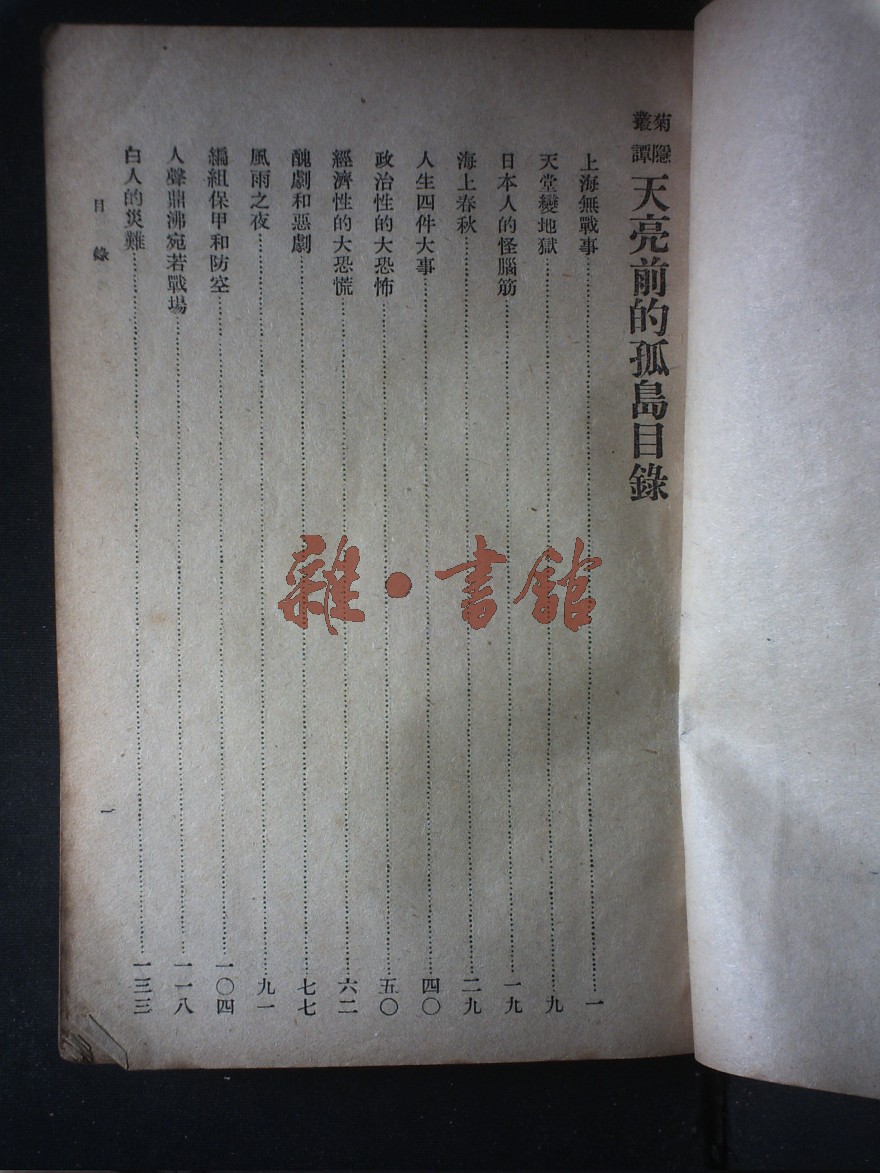 菊隱叢譚
天亮前的孤島目錄
上海無戰事……一
天堂變地獄……九
日本人的怪腦筋……一九
海上春秋……二九
人生四件大事……四〇
政治性的大恐怖……五〇
經濟性的大恐慌……六二
醜劇和惡劇……七七
風雨之夜……九一
編組保甲和防空……一〇四
人聲鼎沸宛若戰場……一一八
白人的災難……一三三
目錄
一
雜·書館